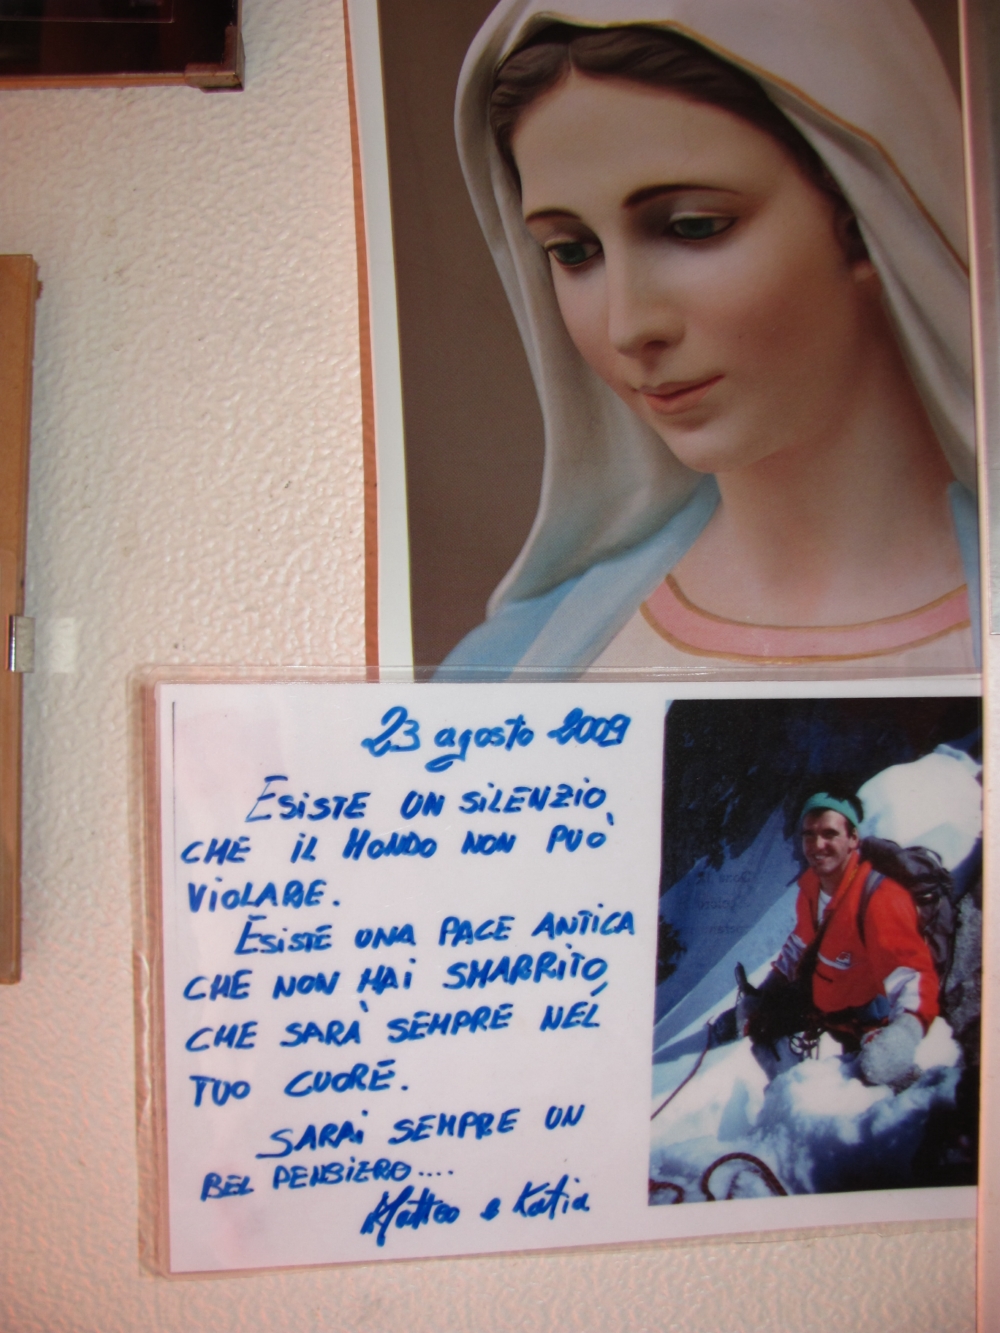 23 agosto 2009
ESISTE UN SILENZIO
CHE IL MONDO NON PUO'
VIOLARE.
ESISTE UNA PACE ANTICA
CHE NON HAI SMARRITO,
CHE SARA' SEMPRE NEL
TUO CUORE.
SARAI SEMPRE UN
BEL PENSIERO....
Matteo e Katia